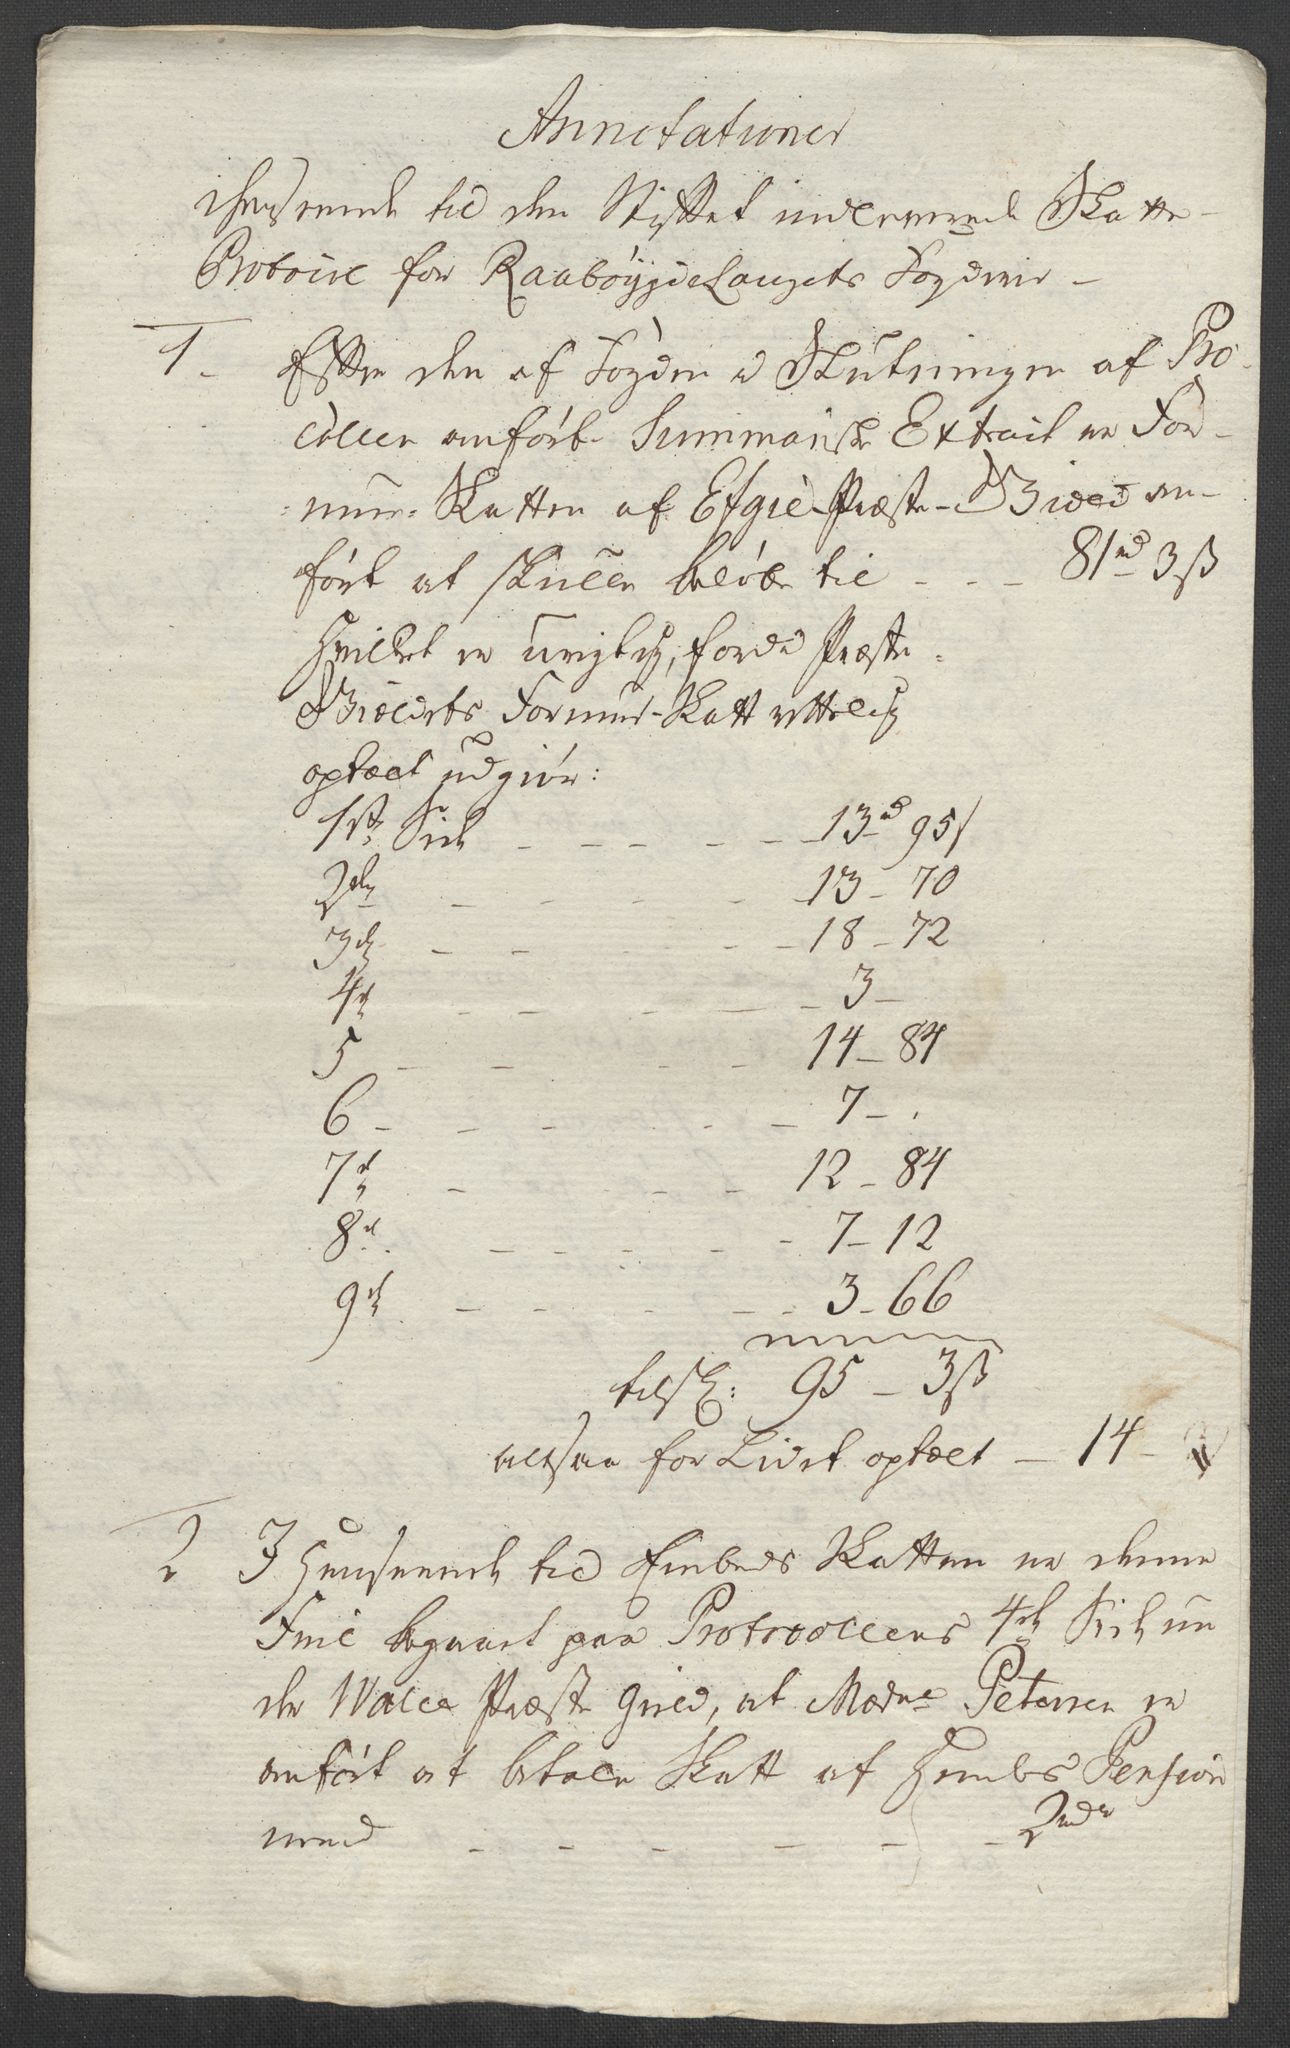 Annotationer
henseende til den Stiftet indleverede Skatte-
Protocol for Raabøygdelaugets Fogderie -
1. Efter den af Fogden ved Slutningen af Pro-
collen anførte Summariske Extract er For-
mues-Skatten af Efgie Præste-Gield an-
ført at skulle beløbe til - - - 81 rd 3 ß
Hvilket er urigtig, fordi Præste-
Gieldets Formues-Skatt rettelig
optælt udgiør:
1ste Side - - - - - - 13 rd 95 ß
2den - - - - - 13 - 70
3de - - - - - 18 - 72
4de - - - - - 3 -
5 - - - - - 14 - 84
6 - - - - - - 7 - .
7de - - - - - 12 - 84
8de - - - - - - 7 - 12
9de - - - - - 3 - 66
tilsk: 95 - 3 ß
altsaa for Lidet optælt - 14 -
2 I Henseende til Embeds Skatten er denne
Feil begaaet paa Protocollens 4de Side un
der Walle Præste Gield, at Mad.me Petersen er
anført at betale Skatt af Hendes Pension
med - - - - - - 2 rdr